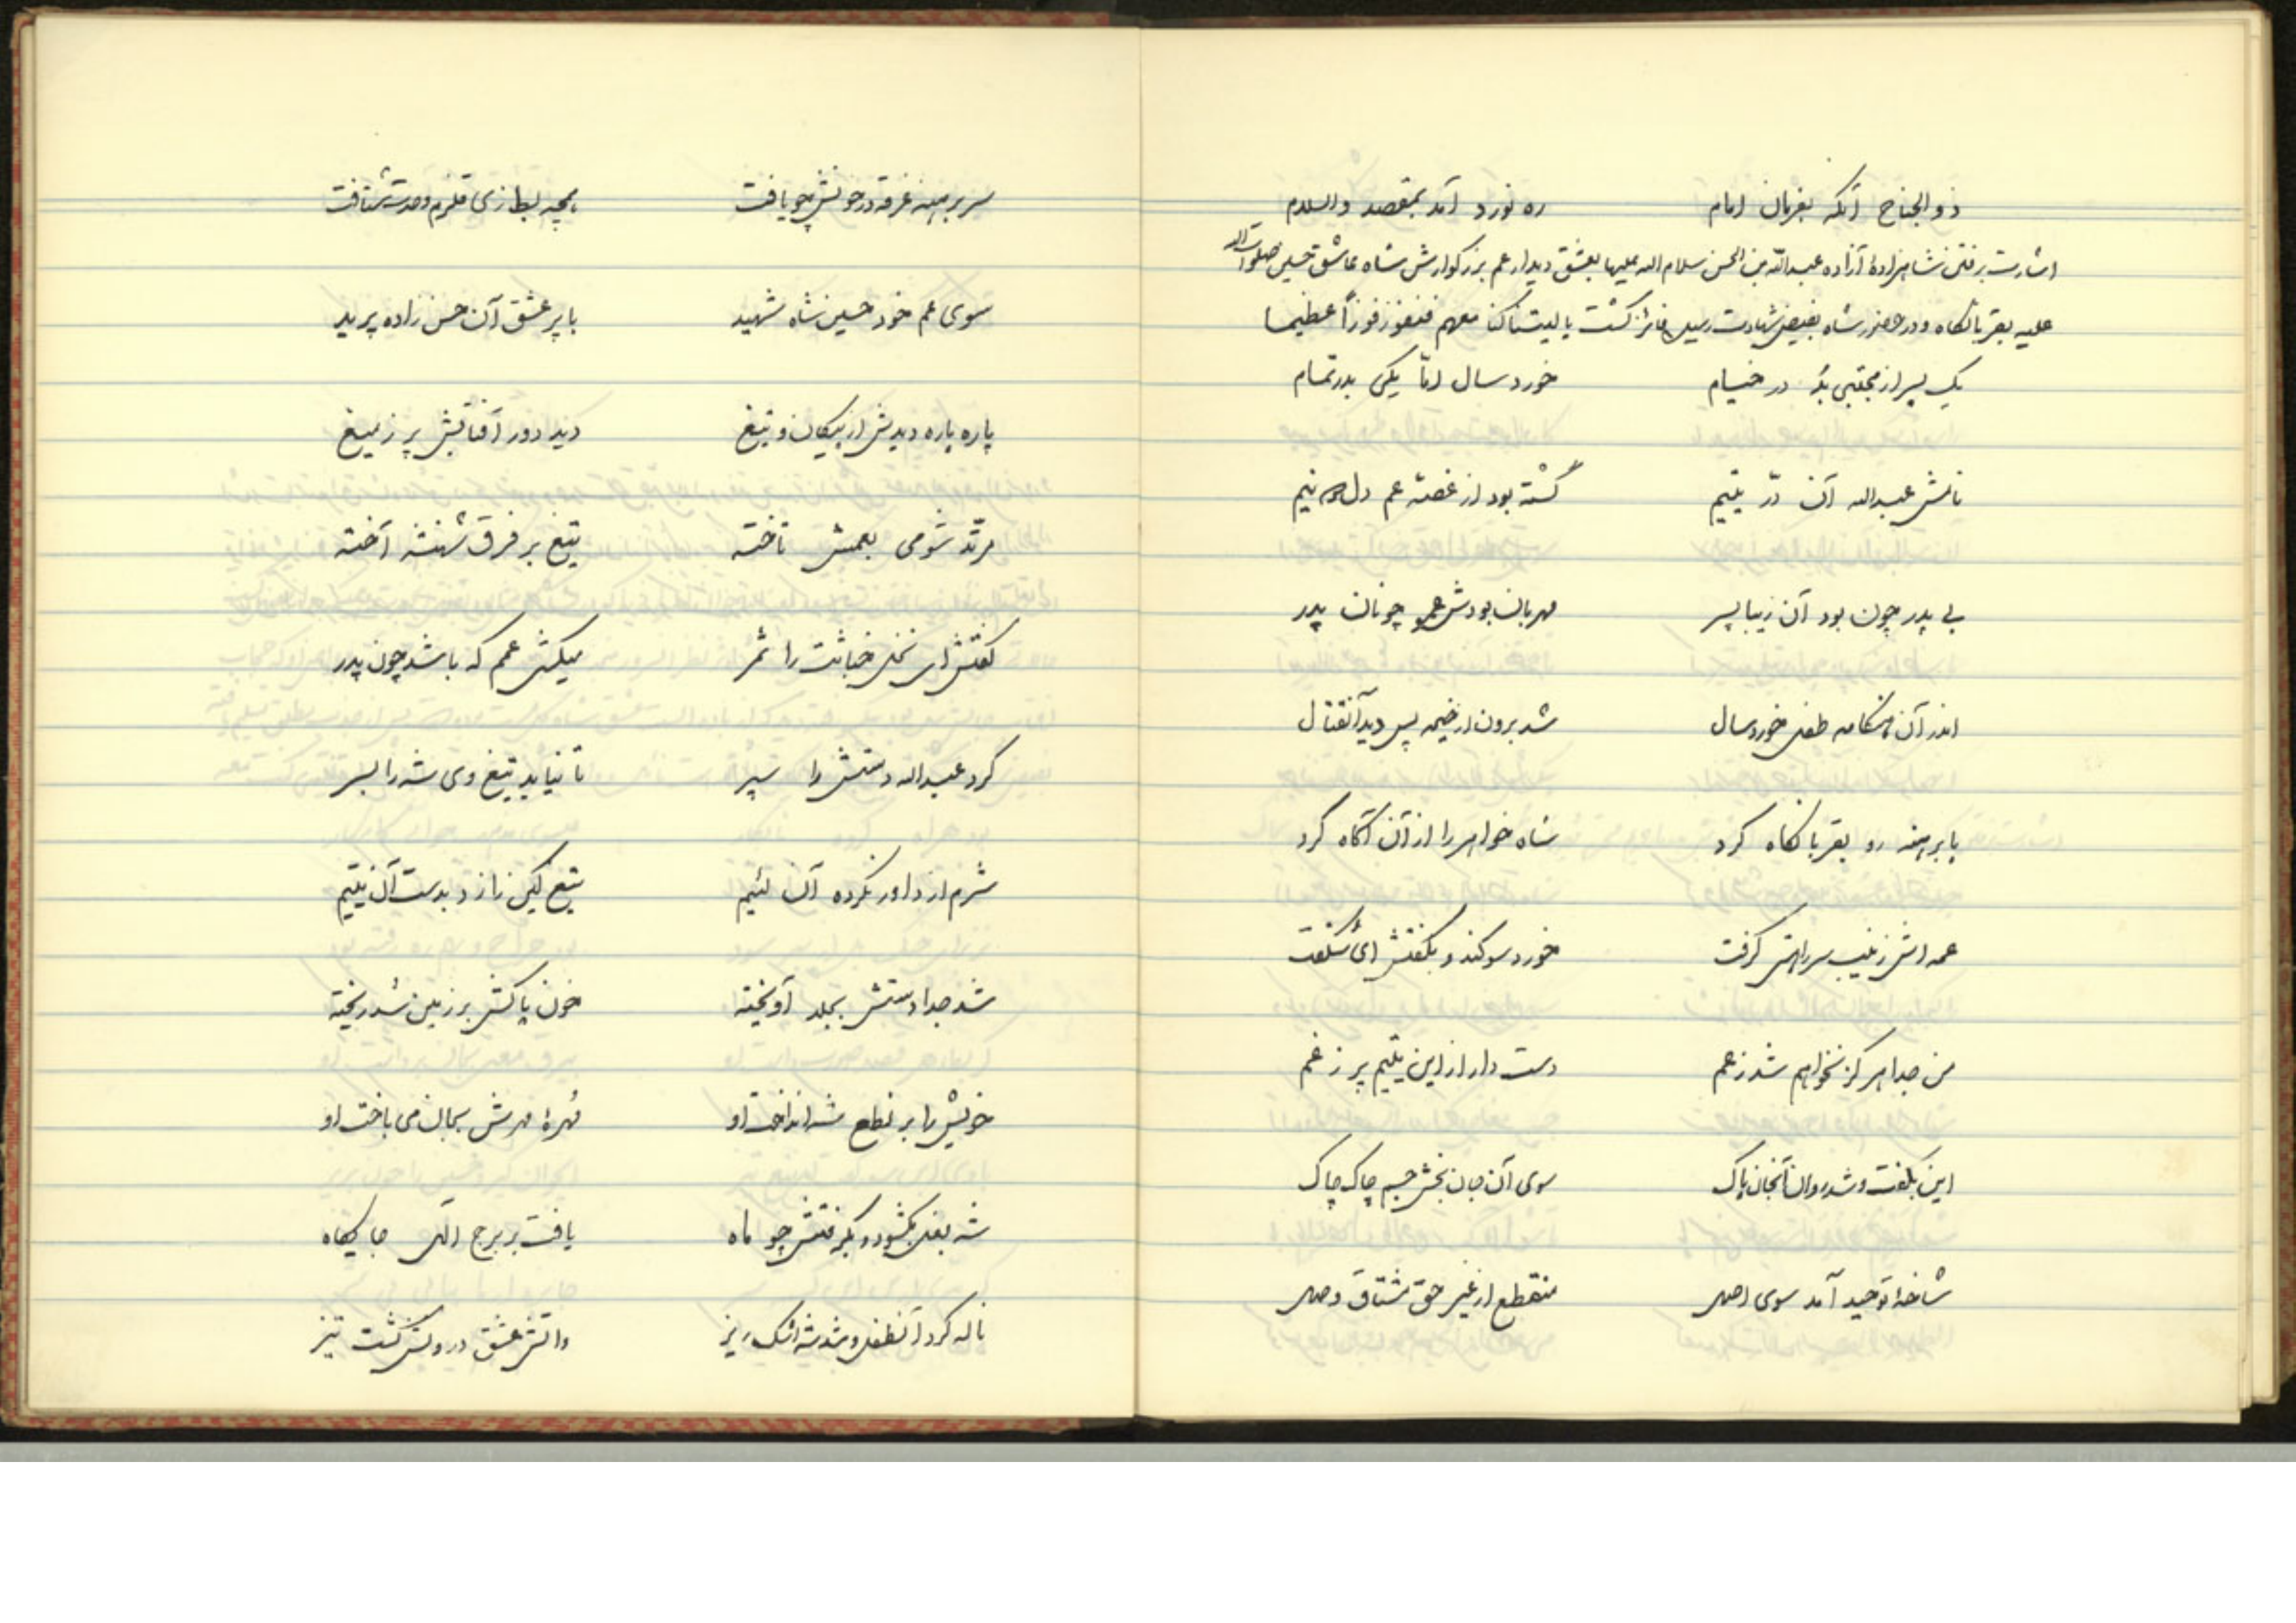 ذوالجناح آنگه بفرمان امام ره نورد آمد بمقصد والسلام
اشارت برفتن شاهزادهٔ آزاده عبدالله بن الحسن سلام الله علیها بعشق دیدار عم بزرگوارش شاه عاشق حسین صلوات الله
علیه بقربانگاه و در حضور شاه بفیض شهادت رسید فائز گشت یا لیتنا کنا معهم فنفوز فوزاً عظیما
یک پسر از مجتبی بُد در خیام خورد سال امّا یکی بدر تمام
نامش عبدالله آن دّر یتیم گشته بود از غصّه عم دل دو نیم
بی پدر چون بود آن زیبا پسر مهربان بودش عمو چونان پدر
اندر آن هنگامه طفل خوردسال شد برون از خیمه پس دید آنقتال
پا برهنه رو بقربانگاه کرد شاه خواهر را از آن آگاه کرد
عمه اش زینب سر راهش گرفت خورد سوگند و بگفتش ای شگفت
من جدا هرگز نخواهم شد ز عم دست دار از این یتیم پر ز غم
این بگفت و شد روان آنجان پاک سوی آن جان بخش جسم چاک چاک
شاخهٔ توحید آمد سوی اصل منقطع از غیر حق مشتاق وصل
سر برهنه غرقه در خونش چو یافت همچه بط از نی قلزم وحدت شتافت
سوی عم خود حسین شاه شهید با پر عشق آن حسن زاده پرید
پاره پاره دیدش از پیکان و تیغ دید دور آفتابش پر ز میغ
مرتّد شومی بعمش تاخته تیغ بر فرق شهنشه آخته
گفتش ای نخل خباثت را ثمر میکشی عمم که باشد چون پدر
کرد عبدالله دستش را سپر تا نیاید تیغ وی شه را بسر
شرم از داور نکرده آن لئیم تیغ کین زد بدست آن یتیم
شد جدا دستش بجلد آویخته خون پاکش بر زمین شد ریخته
خویش را بر نطع شه انداخت او مُهرهٔ مهرش بجان می باخت او
شه بغل بگشود و بگرفتش چو ماه یافت بر برج الهی جایگاه
ناله کرد آنطفل و شد شه اشک ریز واتش عشق درونش گشت تیز